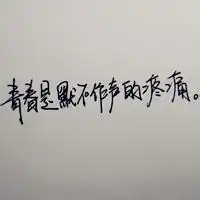 青春是默不作声的疼痛。